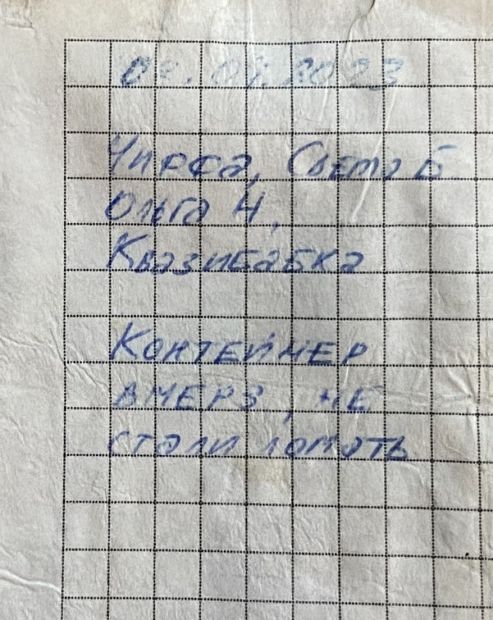 Чирфа, Света Б
Ольга Н,
Квазибабка
Контейнер
вмерз, не
стали ломать